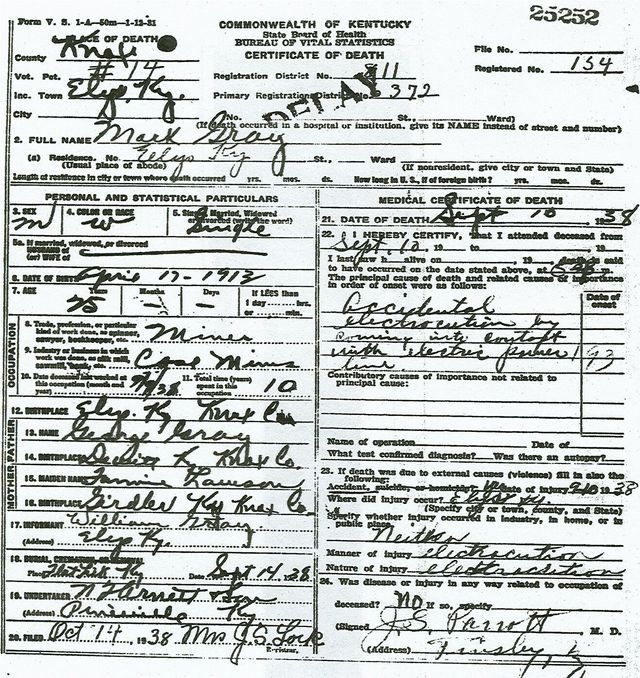 Form V. S. 1-A—50m—1-12-31
25252
COMMONWEALTH OF KENTUCKY
State Board of Health
BUREAU OF VITAL STATISTICS
CERTIFICATE OF DEATH
PLACE OF DEATH
County Knox
Vot. Pct. #14
Inc. Town Elys Ky.
City
File No.
Registered No. 154
Registration District No. 811
Primary Registration District No. 6372
DELAY
No. St., Ward)
(If death occurred in a hospital or institution, give its NAME instead of street and number)
2. FULL NAME Mark Gray
(a) Residence. No. Elys Ky St., Ward
(Usual place of abode) (If nonresident, give city or town and State)
Length of residence in city or town where death occurred yrs. mos. ds. How long in U. S., if of foreign birth? yrs. mos. ds.
PERSONAL AND STATISTICAL PARTICULARS
3. SEX M
4. COLOR OR RACE W
5. Single, Married, Widowed or Divorced (write the word) Single
5a. If married, widowed, or divorced
HUSBAND of
(or) WIFE of
6. DATE OF BIRTH April 17-1913
7. AGE Years 25 Months — Days — If LESS than 1 day hrs. or min.
OCCUPATION
8. Trade, profession, or particular kind of work done, as spinner, sawyer, bookkeeper, etc. Miner
9. Industry or business in which work was done, as silk mill, sawmill, bank, etc. Coal Mines
10. Date deceased last worked at this occupation (month and year) 9/9/38
11. Total time (years) spent in this occupation 10
12. BIRTHPLACE Elys. Ky Knox Co.
MOTHER FATHER
13. NAME George Gray
14. BIRTHPLACE Knox Co.
15. MAIDEN NAME Fannie Lawson
16. BIRTHPLACE Girdler Ky Knox Co.
17. INFORMANT William Gray
(Address) Elys Ky.
18. BURIAL, CREMATION OR REMOVAL
Place Flat Lick Ky Date Sept 14-38
19. UNDERTAKER
(Address) Pineville Ky
20. FILED Oct 14, 1938 Mrs J. S. Lock
Registrar.
MEDICAL CERTIFICATE OF DEATH
21. DATE OF DEATH Sept 10 1938
22. I HEREBY CERTIFY, That I attended deceased from
Sept. 10, 19 to 19
I last saw h alive on 19 death is said
to have occurred on the date stated above, at m.
The principal cause of death and related causes of importance
in order of onset were as follows:
Date of onset
Accidental
electrocution by
coming into contact
with electric power
line
193
Contributory causes of importance not related to
principal cause:
Name of operation Date of
What test confirmed diagnosis? Was there an autopsy?
23. If death was due to external causes (violence) fill in also the
following:
Accident, suicide, or homicide? Date of injury 1938
Where did injury occur?
(Specify city or town, county, and State)
Specify whether injury occurred in industry, in home, or in
public place. Neither
Manner of injury electrocution
Nature of injury electrocution
24. Was disease or injury in any way related to occupation of
deceased? No If so, specify
(Signed) J. S. Parrott, M. D.
(Address) Tinsley, Ky